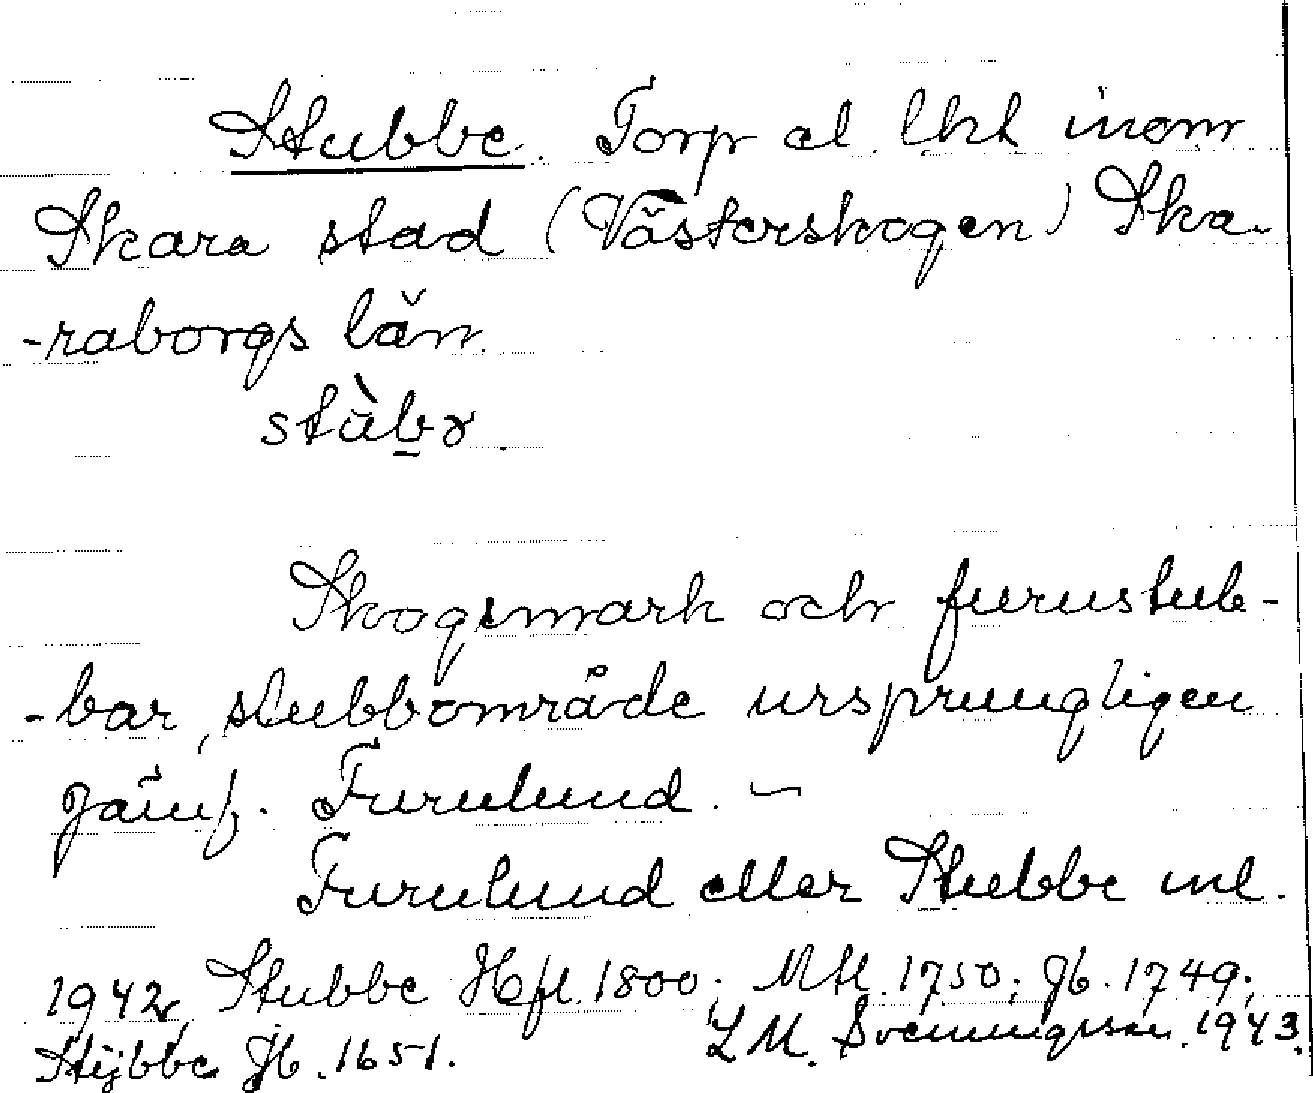 Stubbe. Torp el. lht inom
Skara stad (Västerskogen) Ska-
-raborgs län.
stùbə
Skogsmark och furustub-
-bar, stubbområde ursprungligen
jämf. Furulund. –
Furulund eller Stubbe ml.
1942, Stubbe Hfl. 1800; Mtl. 1750; Jb. 1749;
Stijbbe Jb. 1651.
L M. Svenungsson. 1943.